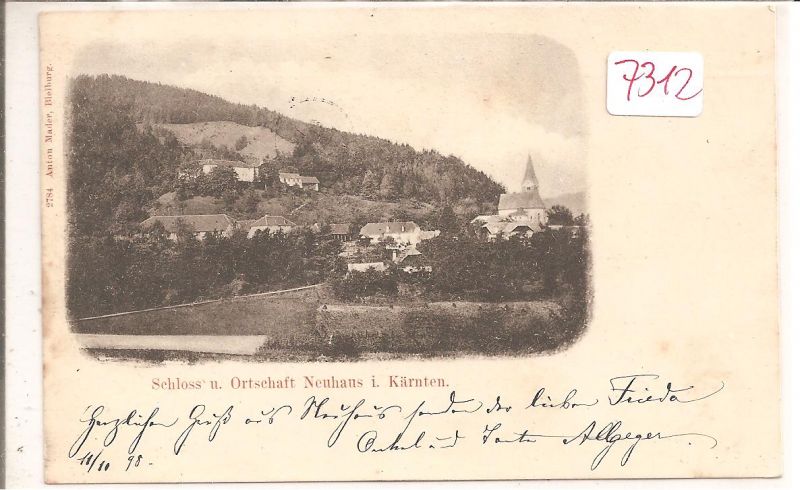 7312
2784 Anton Mader, Bleiburg.
Schloss u. Ortschaft Neuhaus i. Kärnten.
Herzlichen Gruß aus Neuhaus senden der lieben Frieda
Onkel und Tante
11/10 98.